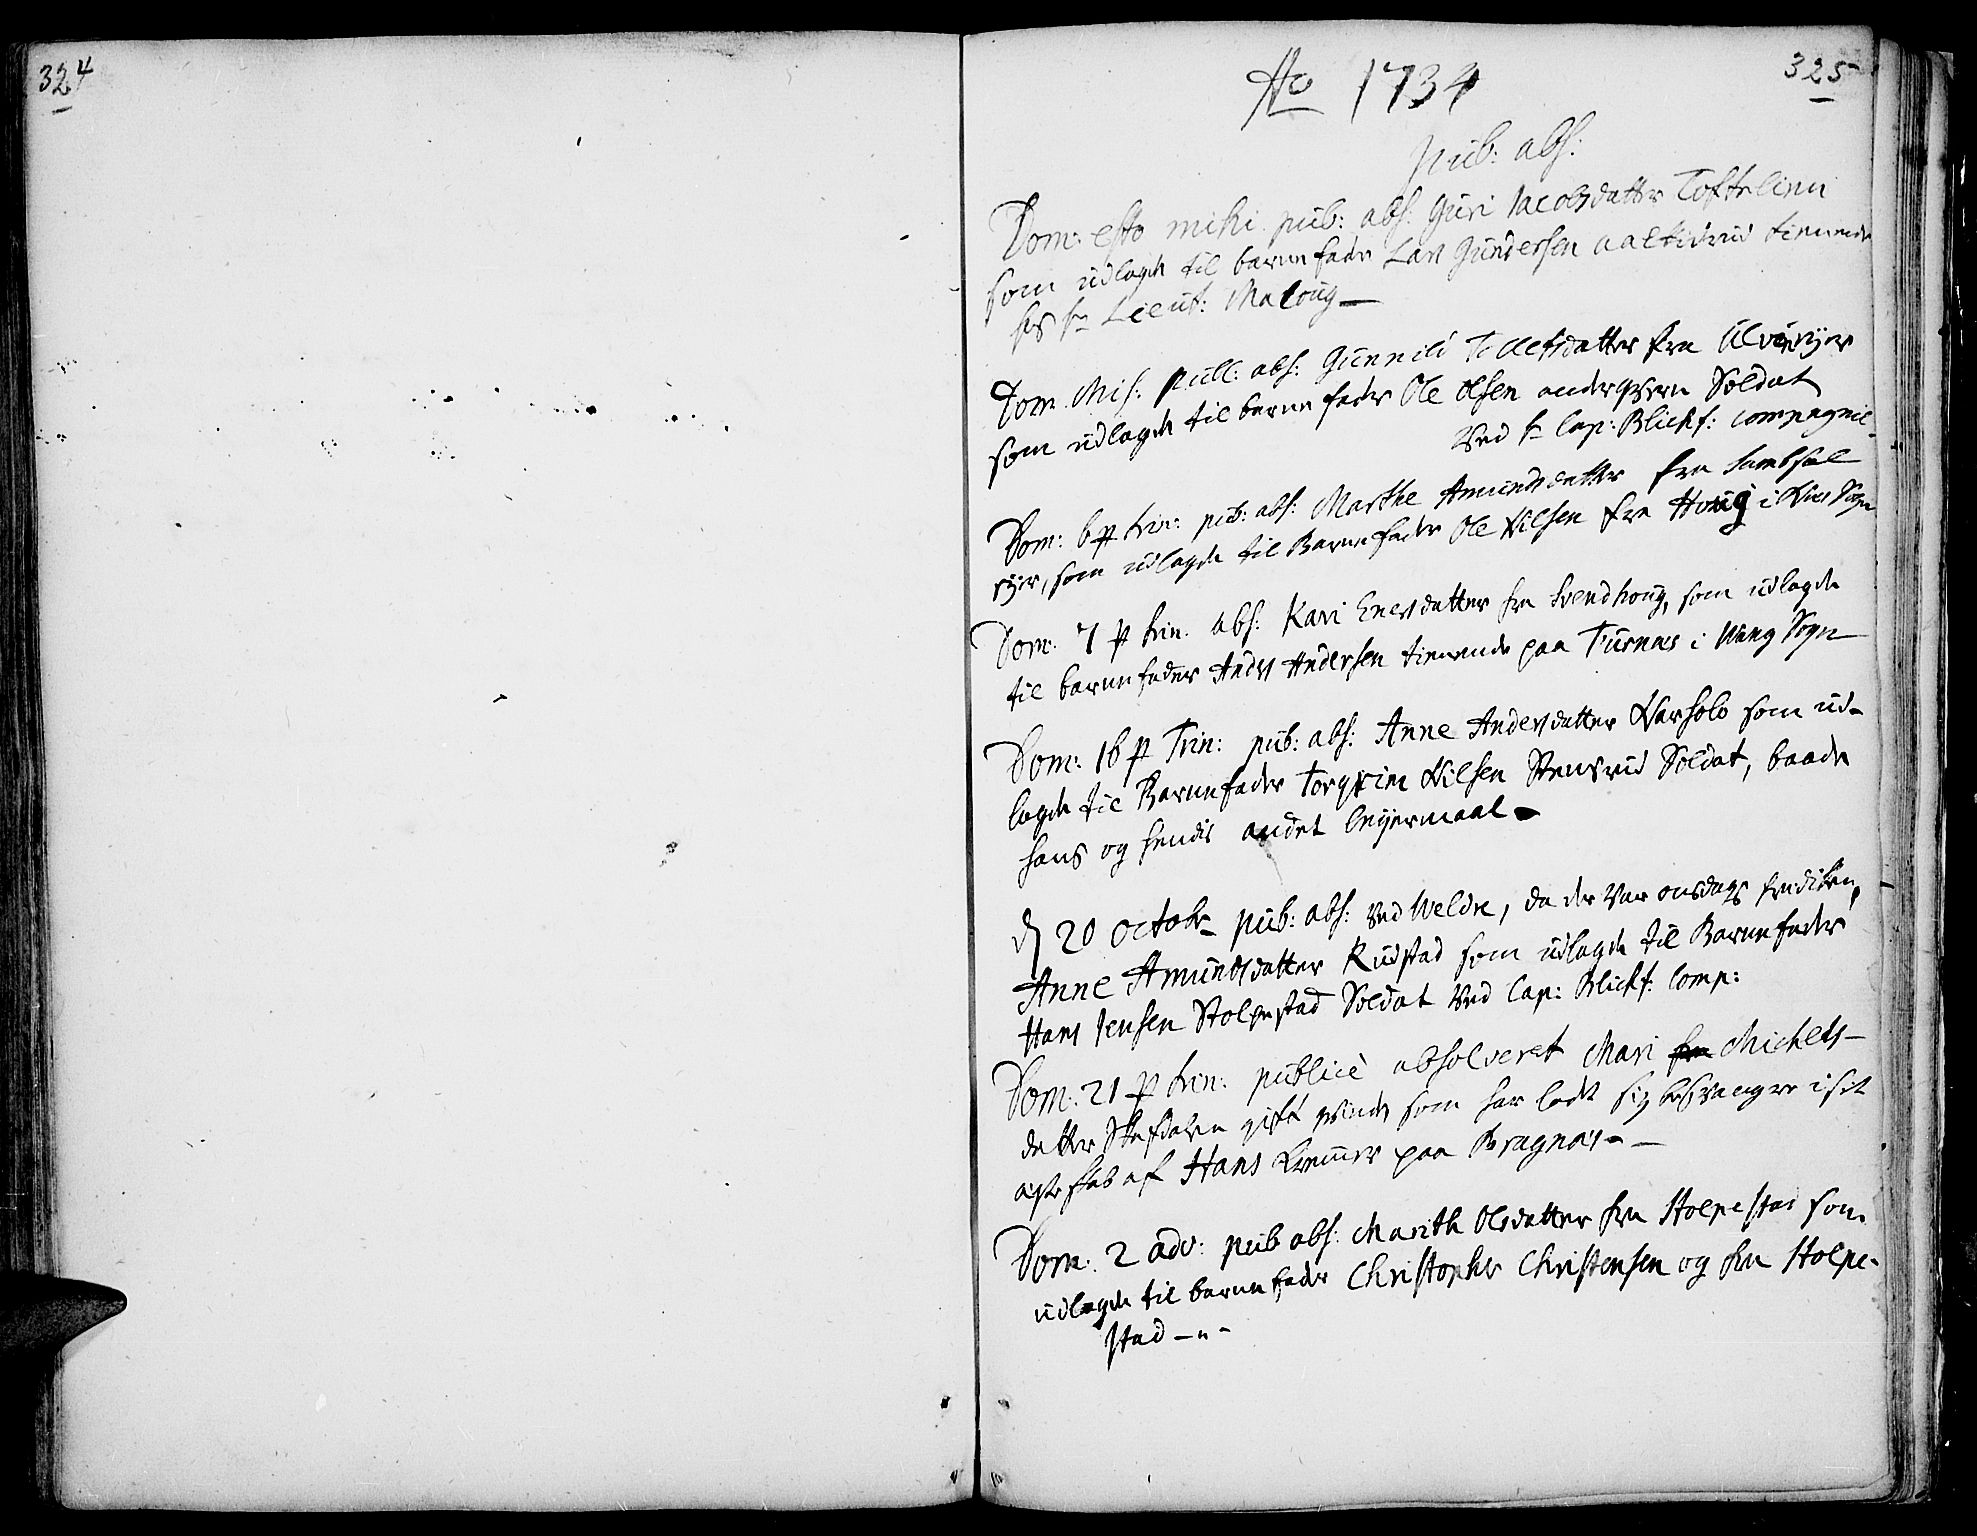 324
325
Ao 1734
pub: abs:
Dom: esto mihi pub: abs: Guri Jacobsdatter Toftelien
som udlagde til barnefader Lars Gundersen tienende
hos hr Lieut: Maloug
Dom. Mis: pub: abs: Gunnild Tollefsdatter fra
som udlagde til barnefader Ole Olsen Soldat
ved hr Cap: Blichf: compagnie
Dom: 6 p trin: pub: abs: Marthe Amundsdatter fra
som udlagde til Barnefader Ole Nilsen fra Houg i Sogn
Dom. 7 p trin. abs: Kari Enersdatter fra Svendhoug, som udlagde
til barnefader Anders Andersen tienende paa Furnæs i Wang Sogn
Dom: 16 p Trin: pub: abs: Anne Andersdatter som ud-
lagde til Barnefader Torgrim Nilsen Stensrud Soldat, baade
hans og hendis andet leyermaal
d 20 octobr pub: abs: ved Weldre, da der var onsdags prediken,
Anne Amundsdatter Rudstad som udlagde til Barnefader
Hans Jensen Stolpestad Soldat ved Cap: Blichf: Comp:
Dom: 21 p trin: publicè absolveret Mari fra Michels-
datter gift qvinde som har ladet sig besvangre i sit
ægteskab af Hans paa Bragnæs
Dom: 2 adv: pub abs: Marith Olsdatter fra Stolpestad som
udlagde til barnefader Christopher Christensen og fra Stolpe-
stad